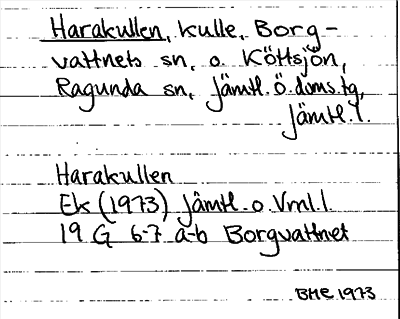 Harakullen, kulle, Borg-
vattnets sn. o. Köttsjön,
Ragunda sn, Jämtl. Ö. doms. tg,
Jämtl. l.
Harakullen
Ek (1973) Jämtl. o. Vrnl. l.
19 G 6-7 a-b Borgvattnet
BHE 1973